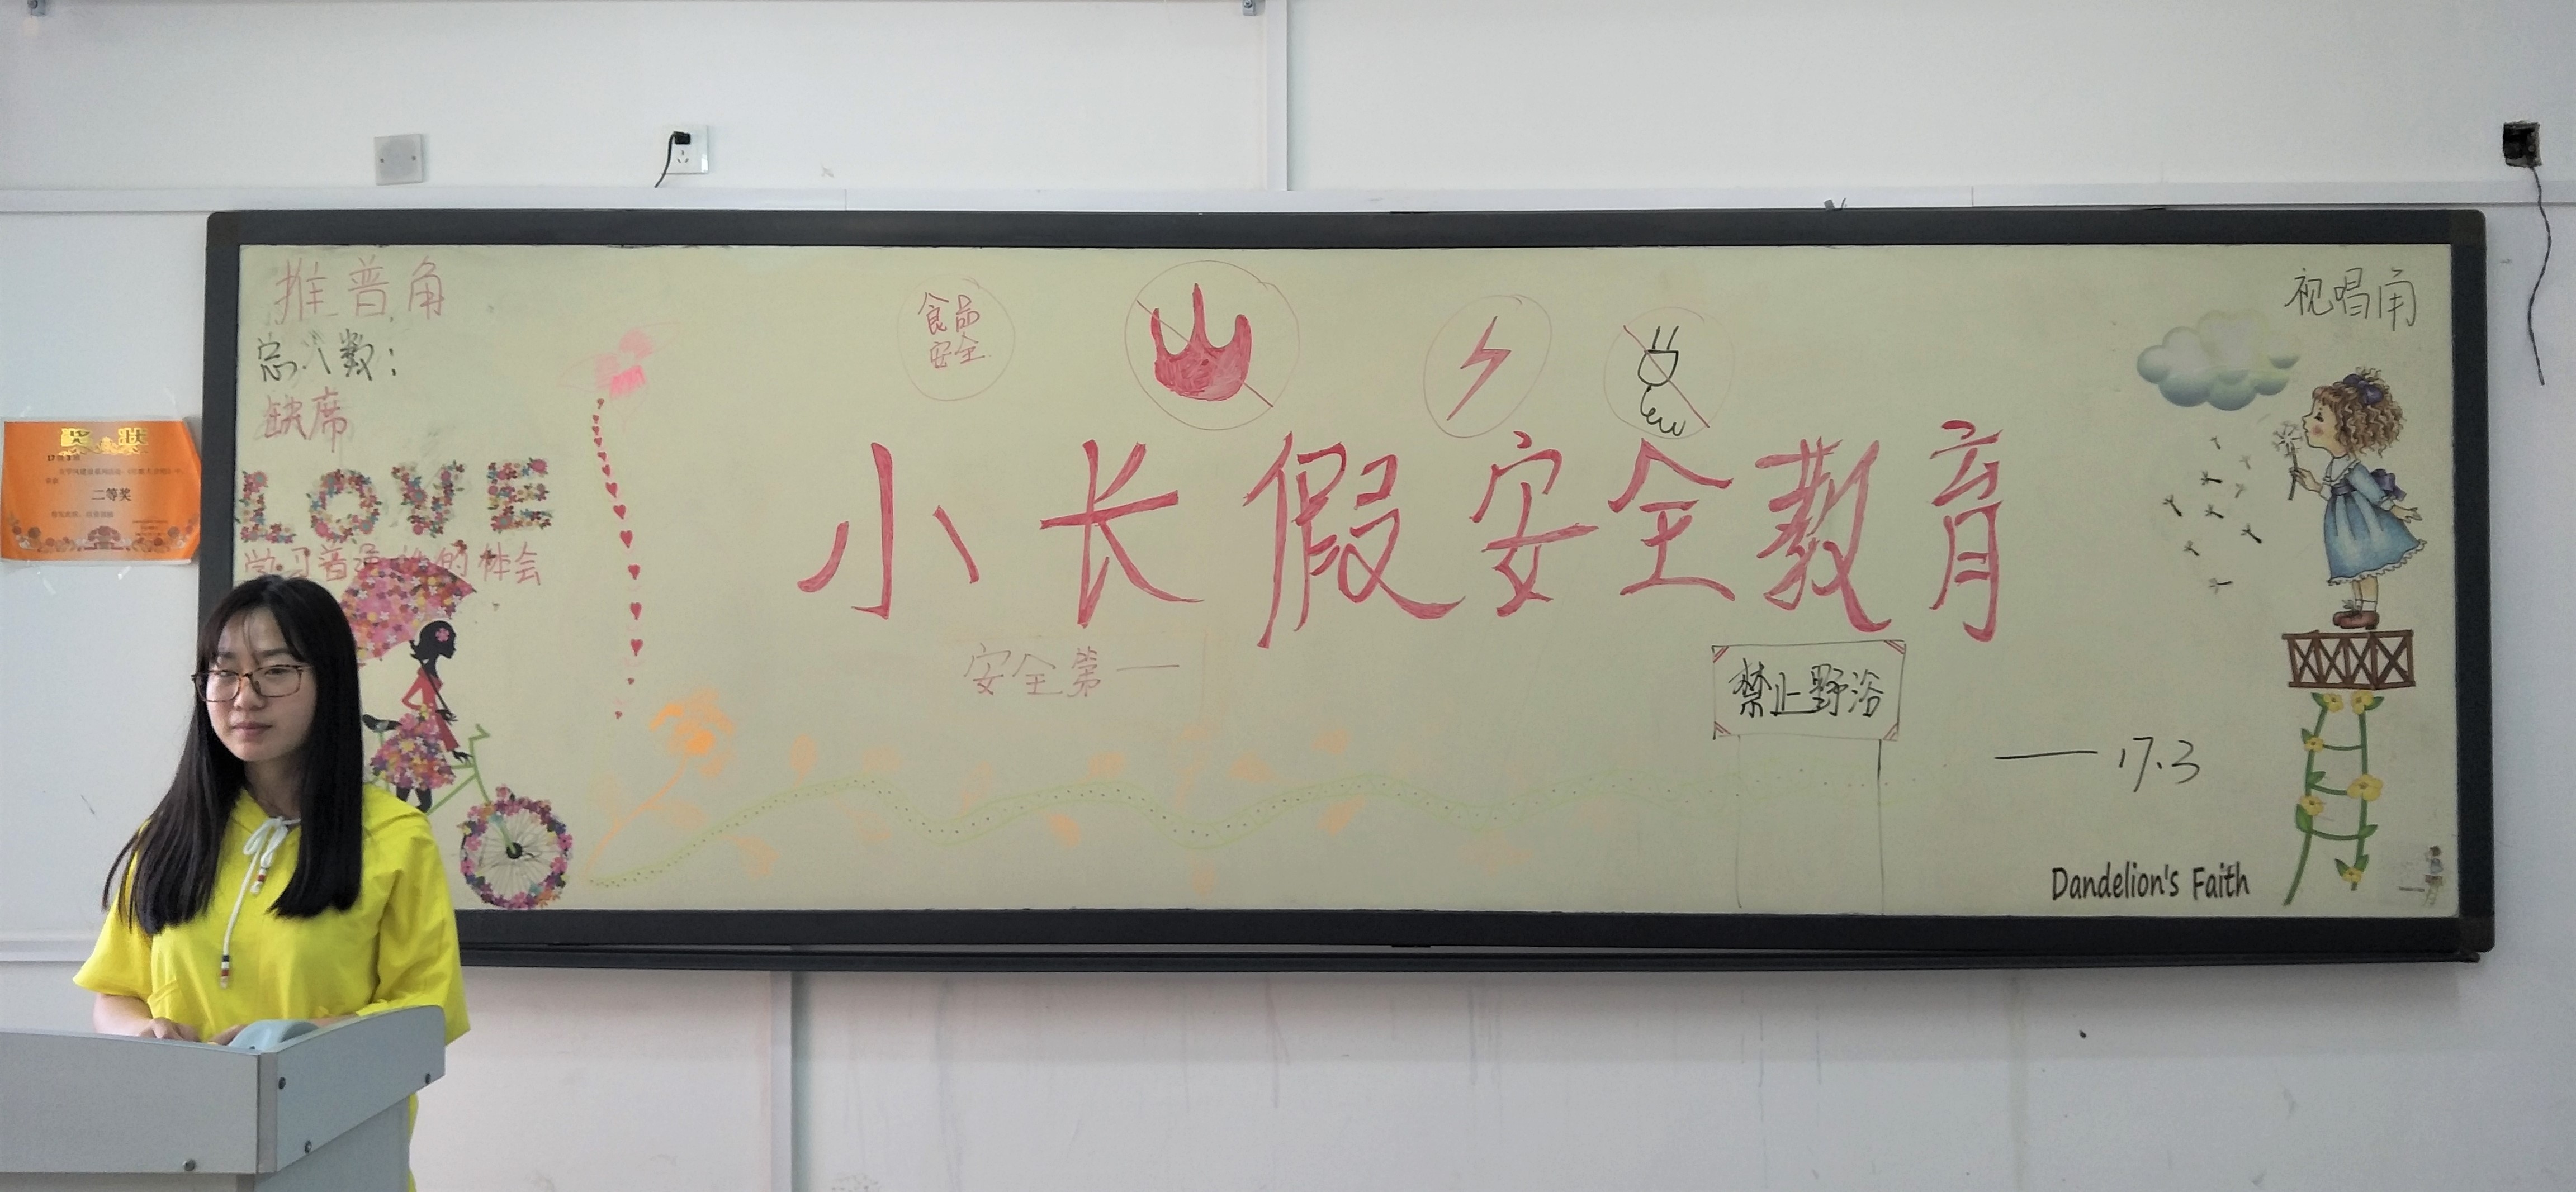 推普角
总人数:
缺席
LOVE
学习普通话的体会
奖状
二等奖
食品
安全
小长假安全教育
安全第一
禁止野浴
——17.3
视唱角
Dandelion's Faith